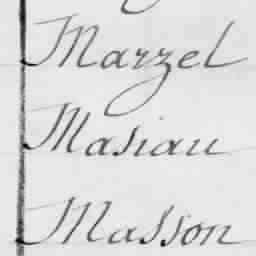 Marzel
Masiau
Masson